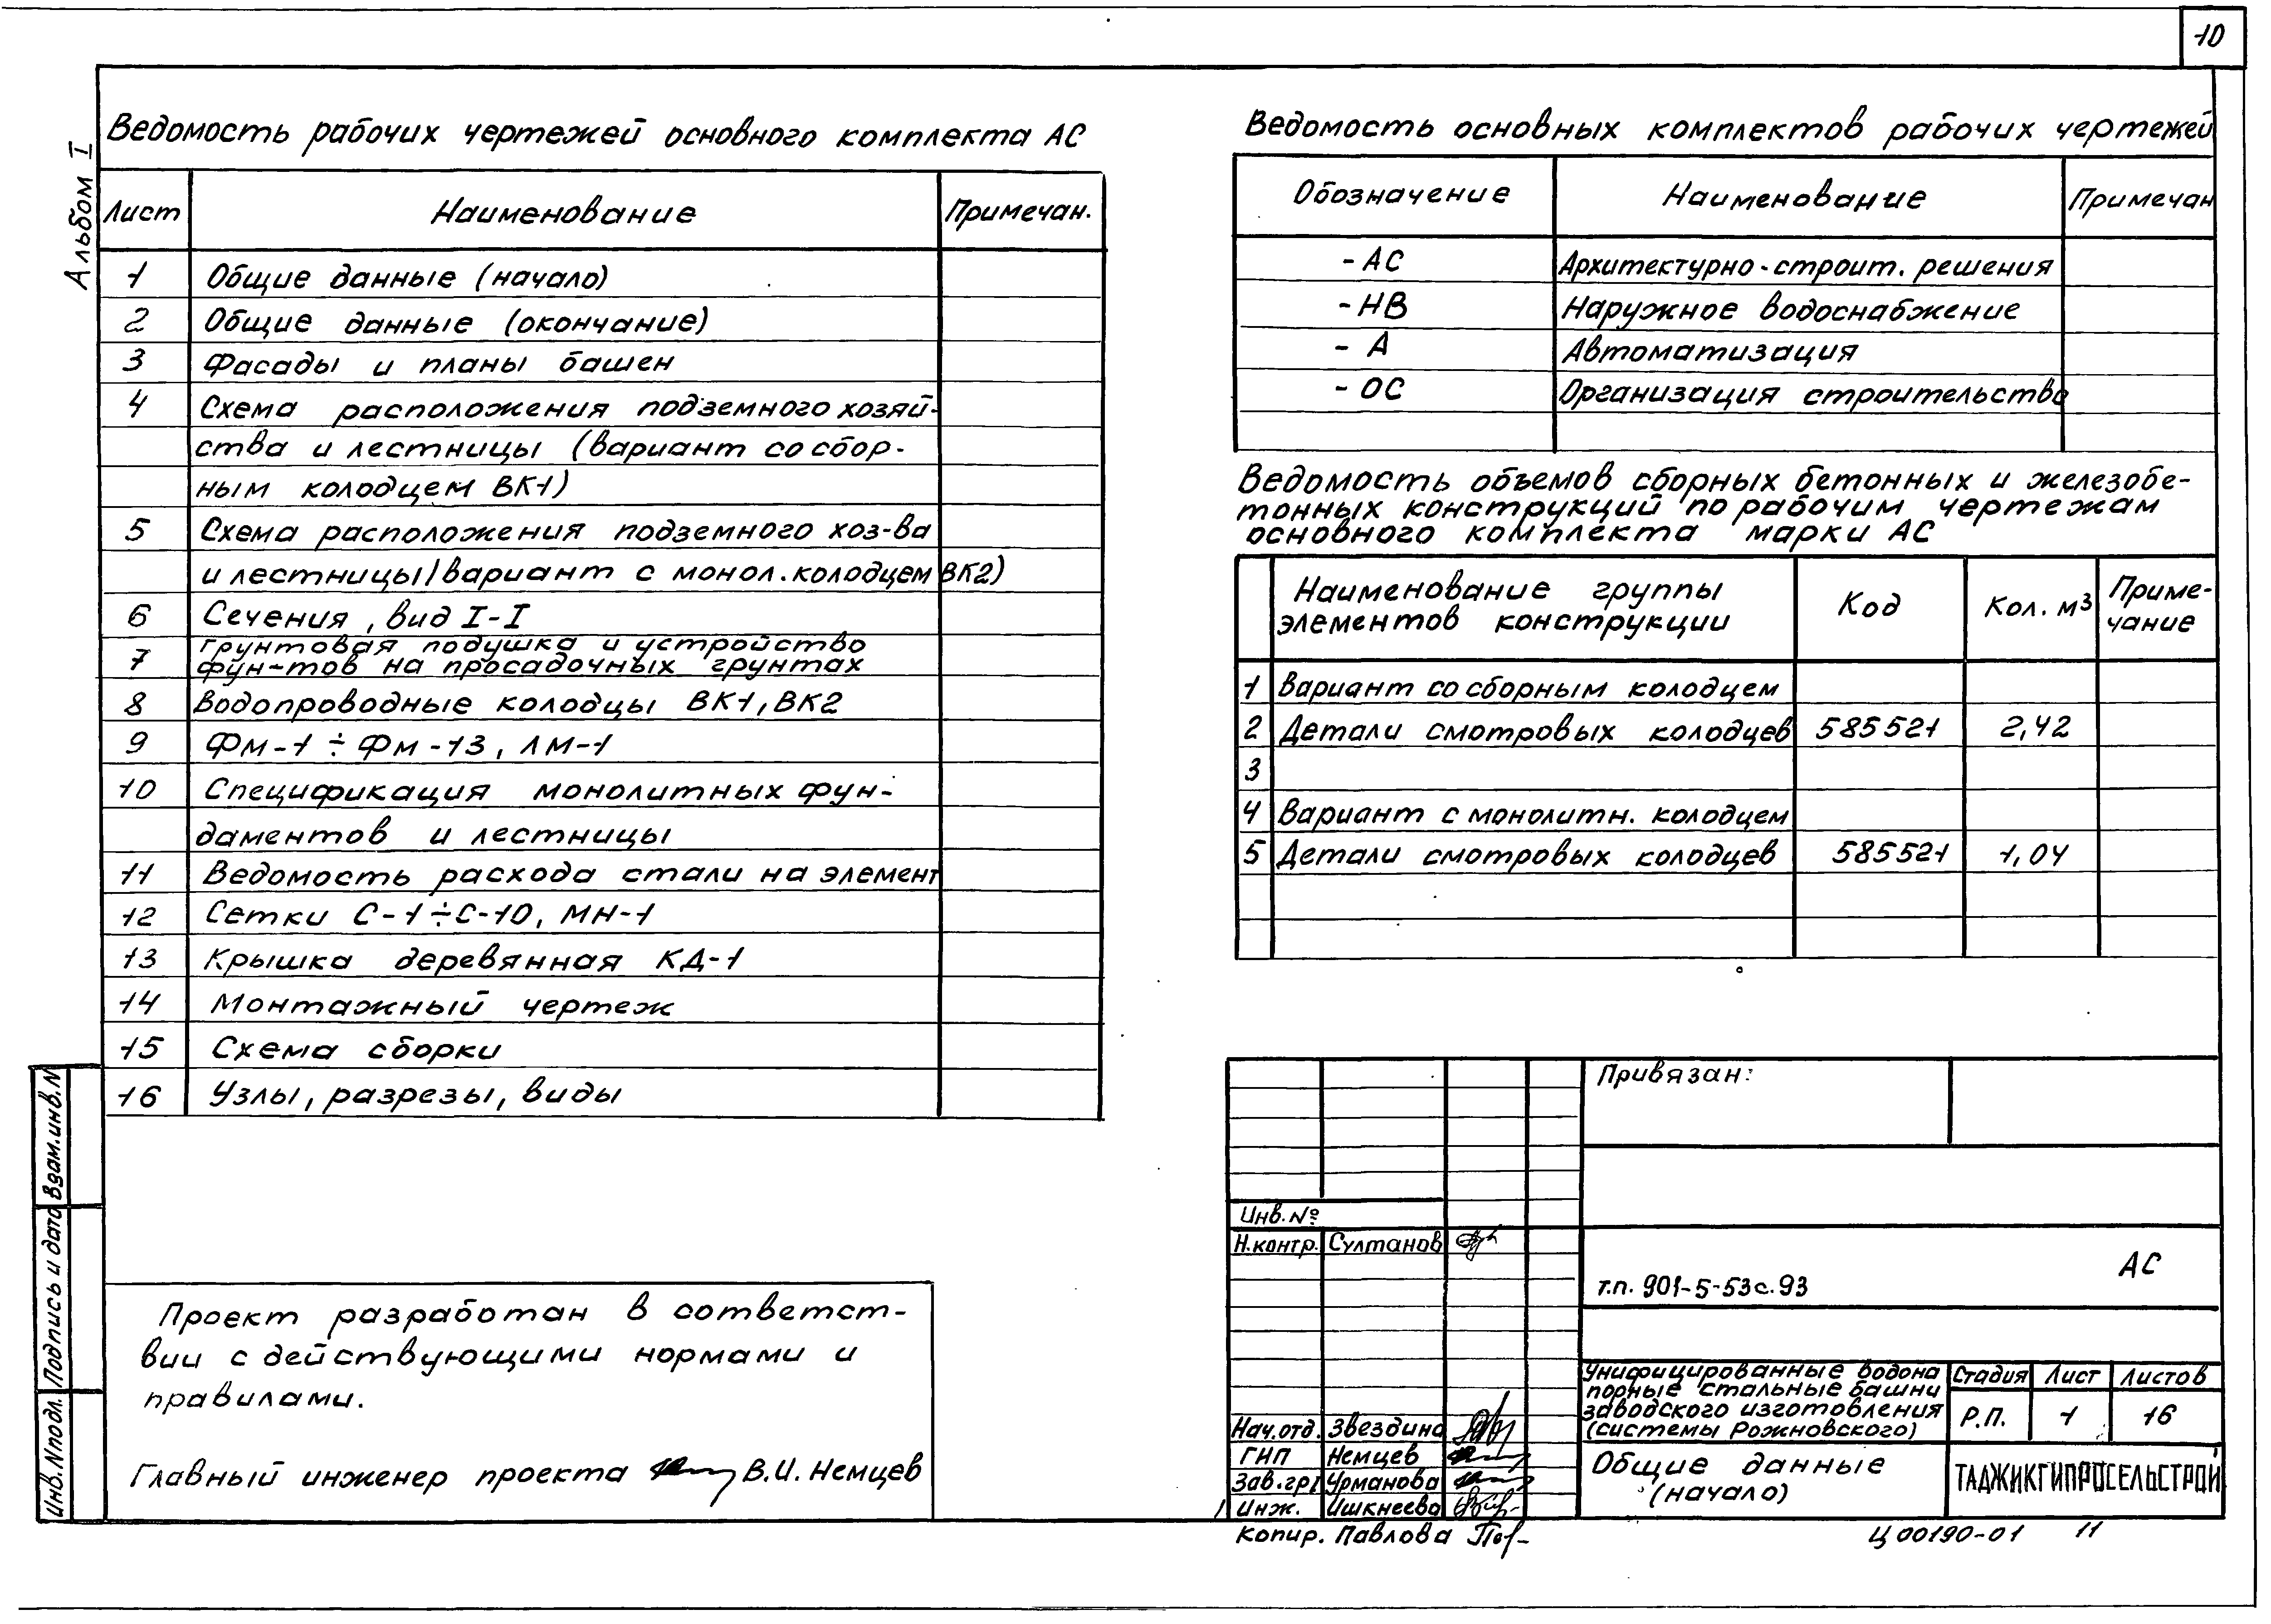 10
Альбом I
Ведомость рабочих чертежей основного комплекта АС
Лист Наименование Примечан.
1 Общие данные (начало)
2 Общие данные (окончание)
3 Фасады и планы башен
4 Схема расположения подземного хозяй-
ства и лестницы (вариант со сбор-
ным колодцем ВК1)
5 Схема расположения подземного хоз-ва
и лестницы/вариант с монол.колодцем ВК2)
6 Сечения, вид I-I
7 Грунтовая подушка и устройство
фун-тов на просадочных грунтах
8 Водопроводные колодцы ВК1, ВК2
9 Фм-1 ÷ Фм-13, ЛМ-1
10 Спецификация монолитных фун-
даментов и лестницы
11 Ведомость расхода стали на элемент
12 Сетки С-1÷С-10, МН-1
13 Крышка деревянная КД-1
14 Монтажный чертеж
15 Схема сборки
16 Узлы, разрезы, виды
Ведомость основных комплектов рабочих чертежей
Обозначение Наименование Примечан
-АС Архитектурно-строит. решения
-НВ Наружное водоснабжение
- А Автоматизация
- ОС Организация строительства
Ведомость объемов сборных бетонных и железобе-
тонных конструкций по рабочим чертежам
основного комплекта марки АС
Наименование группы элементов конструкции Код Кол. м3 Приме-
чание
1 Вариант со сборным колодцем
2 Детали смотровых колодцев 585521 2,42
3
4 Вариант с монолитн. колодцем
5 Детали смотровых колодцев 585521 1,04
Проект разработан в соответст-
вии с действующими нормами и
правилами.
Главный инженер проекта В.И. Немцев
Инв.№подл. Подпись и дата Взам.инв.N
Привязан:
Инв. №
Н.контр. Султанов
т.п. 901-5-53с.93 АС
Унифицированные водона
порные стальные башни
заводского изготовления
(системы Рожновского)
Стадия Лист Листов
Р.П. 1 16
Нач.отд. Звездина
ГНП Немцев
Зав.гр. Урманова
Инж. Ишкнеева
Общие данные
(начало)
ТАДЖИКГИПРОСЕЛЬСТРОЙ
Копир. Павлова
Ц 00190-01 11